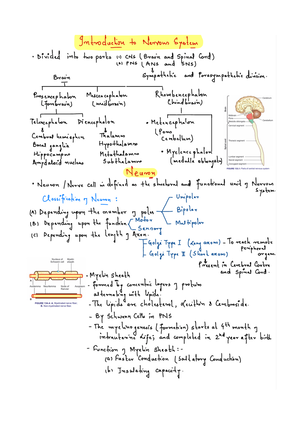 Introduction to Nervous System
- Divided into two parts (i) CNS (Brain and Spinal Cord)
(ii) PNS (ANS and SNS)
Brain
Sympathetic and Parasympathetic division.
Prosencephalon (forebrain)
Mesencephalon (midbrain)
Rhombencephalon (hindbrain)
Telencephalon
Diencephalon
• Metencephalon
(Pons
Cerebellum)
Cerebral hemisphere
Basal ganglia
Hippocampus
Amygdaloid nucleus
Thalamus
Hypothalamus
Metathalamus
Subthalamus
• Myelencephalon
(medulla oblongata)
Neuron
• Neuron / Nerve cell is defined as the structural and functional unit of Nervous
System
Classification of Neuron :
(A) Depending upon the number of poles
Unipolar
Bipolar
Multipolar
(B) Depending upon the function
Motor
Sensory
(C) Depending upon the length of Axon
Golgi Type I (long axons) - To reach remote
peripheral
organs
Golgi Type II (Short axons)
Present in Cerebral Cortex
and Spinal Cord.
- Myelin Sheath
- formed by concentric layers of protein
alternating with lipids.
- The lipids are cholesterol, lecithin & Cerebroside.
- By Schwann Cells in PNS
- The myelinogenesis (formation) starts at 4th month of
intrauterine life and completed in 2nd year after birth
- Function of Myelin Sheath :-
(a) Faster Conduction (Saltatory Conduction)
(b) Insulating Capacity.